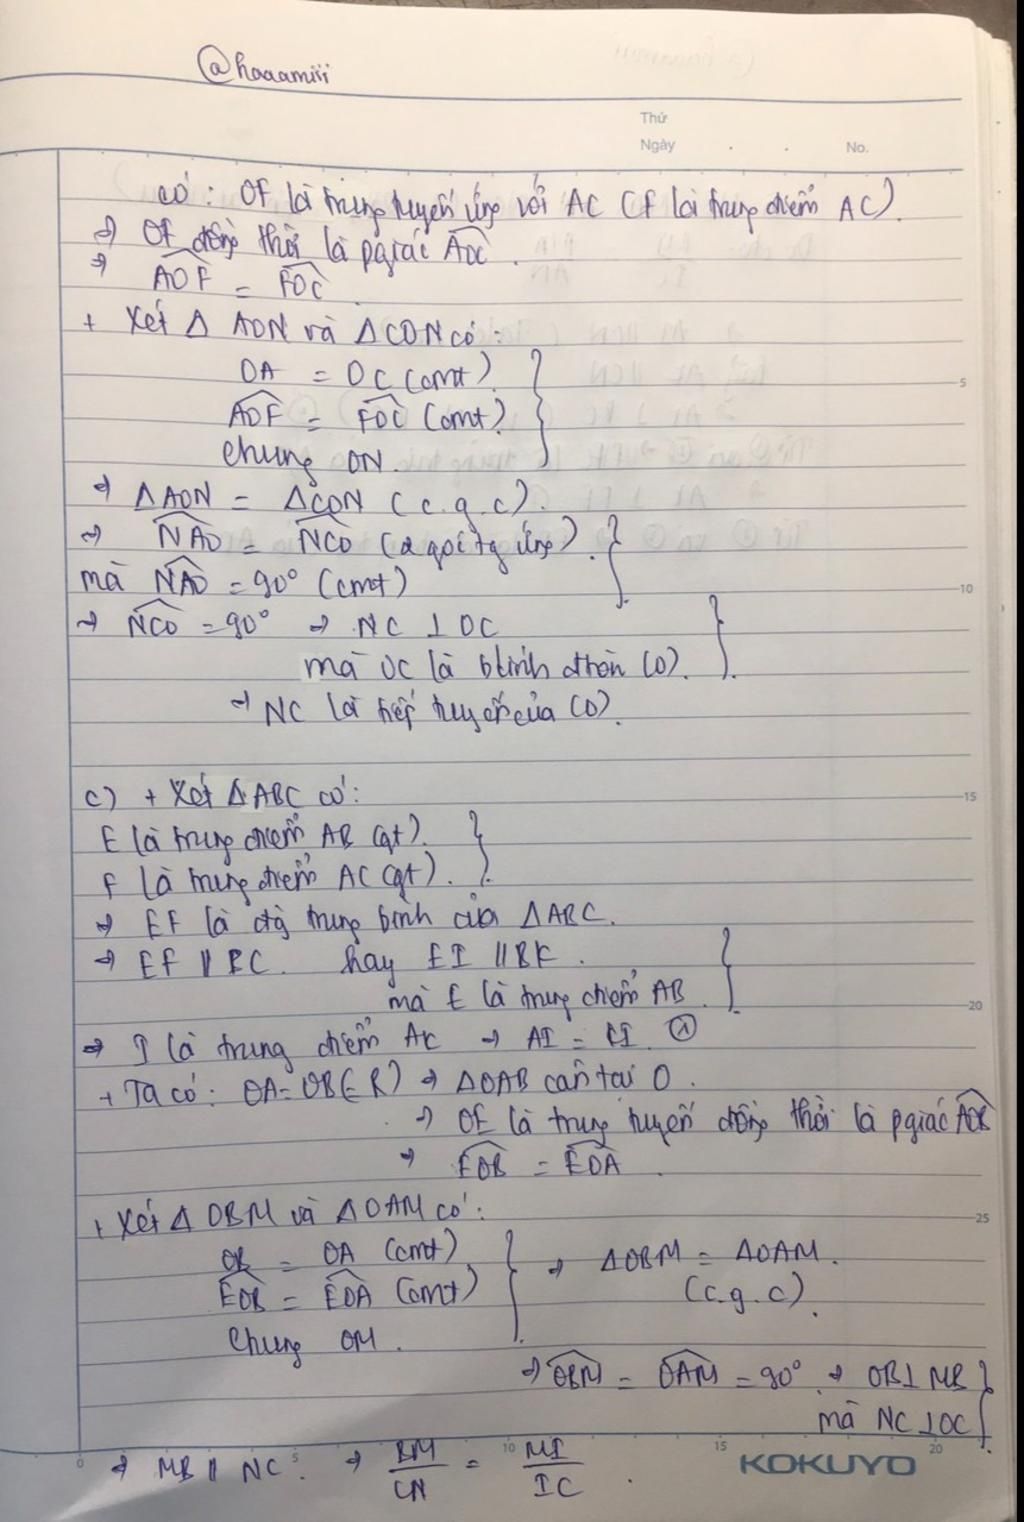 @haaamiii
Thứ
Ngày . . No.
có : OF là trung tuyến ứng với AC (F là trung điểm AC).
⇒ OF đồng thời là pgiác \widehat{AOC}.
⇒ \widehat{AOF} = \widehat{FOC}
+ Xét Δ AON và ΔCON có:
OA = OC (cmt)
\widehat{AOF} = \widehat{FOC} (cmt)
5
chung ON.
⇒ ΔAON = ΔCON (c.g.c).
⇒ \widehat{NAO} = \widehat{NCO} (2 góc tg ứng).
mà \widehat{NAO} = 90° (cmt)
10
⇒ \widehat{NCO} = 90° ⇒ NC ⊥ OC
mà OC là bkính đtròn (O).
⇒ NC là tiếp tuyến của (O).
c) + Xét ΔABC có:
15
E là trung điểm AB (gt).
F là trung điểm AC (gt).
⇒ EF là đg trung bình của ΔABC.
⇒ EF // BC. hay EI // BK.
mà E là trung điểm AB
20
⇒ I là trung điểm AK ⇒ AI = KI. ①
+ Ta có: OA = OB (= R) ⇒ ΔOAB cân tại O.
⇒ OE là trung tuyến đồng thời là pgiác
⇒ \widehat{EOB} = \widehat{EOA}.
+ Xét Δ OBM và ΔOAM có:
25
OB = OA (cmt)
\widehat{EOB} = \widehat{EOA} (cmt)
chung OM.
⇒ ΔOBM = ΔOAM.
(c.g.c).
⇒ \widehat{OBM} = \widehat{OAM} = 90° ⇒ OB ⊥ MB
mà NC ⊥ OC
0 5 10 15 20
⇒ MB // NC. ⇒ BM/CN = MI/IC.
KOKUYO